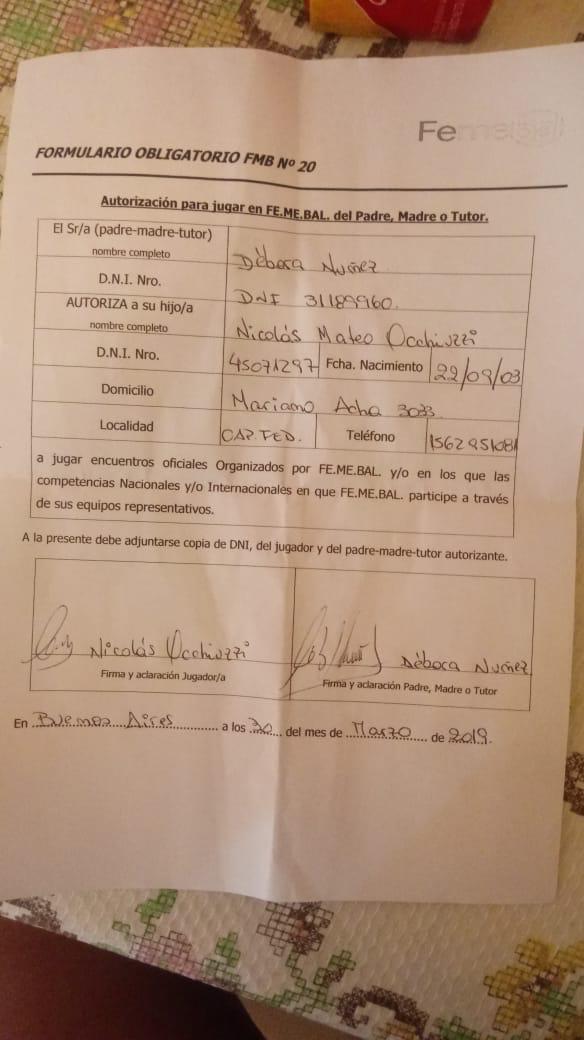 Femebal
FORMULARIO OBLIGATORIO FMB Nº 20
Autorización para jugar en FE.ME.BAL. del Padre, Madre o Tutor.
El Sr/a (padre-madre-tutor)
nombre completo
Débora Nuñez
D.N.I. Nro.
DNI 31189960.
AUTORIZA a su hijo/a
nombre completo
Nicolás Mateo Occhiuzzi
D.N.I. Nro.
45071297
Fcha. Nacimiento
22/09/03
Domicilio
Mariano Acha 3033
Localidad
CAP. FED.
Teléfono
1562951081
a jugar encuentros oficiales Organizados por FE.ME.BAL. y/o en los que las
competencias Nacionales y/o Internacionales en que FE.ME.BAL. participe a través
de sus equipos representativos.
A la presente debe adjuntarse copia de DNI, del jugador y del padre-madre-tutor autorizante.
Nicolás Occhiuzzi
Firma y aclaración Jugador/a
Débora Nuñez
Firma y aclaración Padre, Madre o Tutor
En Buenos Aires a los 30 del mes de Marzo de 2019.